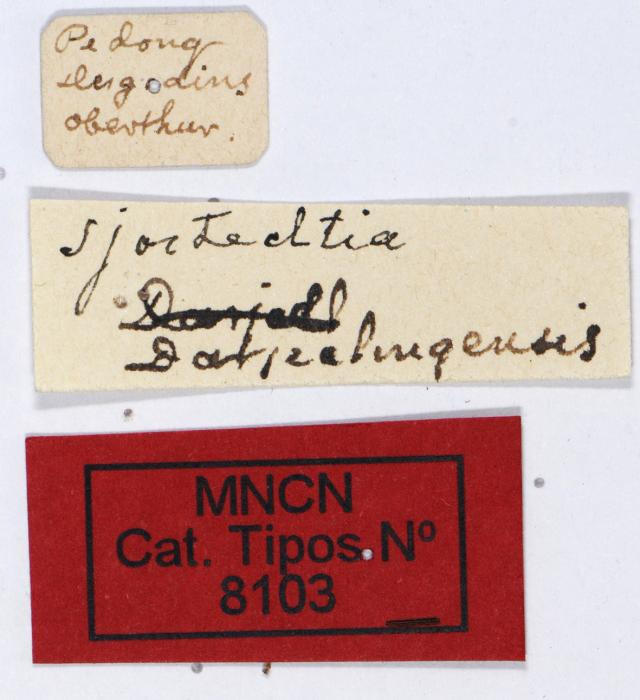 Pedong
desgodins
oberthur.
Sjostedtia
Darjeel
Darjeelingensis
MNCN
Cat. Tipos Nº
8103